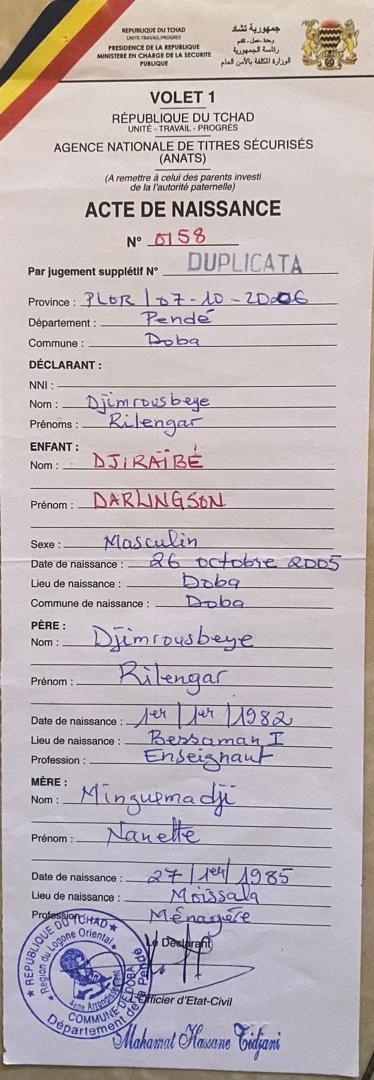 RÉPUBLIQUE DU TCHAD
UNITE-TRAVAIL-PROGRES
PRESIDENCE DE LA REPUBLIQUE
MINISTERE EN CHARGE DE LA SECURITE
PUBLIQUE
جمهورية تشاد
وحدة - عمل - تقدم
رئاسة الجمهورية
الوزارة المكلفة بالأمن العام
VOLET 1
RÉPUBLIQUE DU TCHAD
UNITÉ - TRAVAIL - PROGRÈS
AGENCE NATIONALE DE TITRES SÉCURISÉS
(ANATS)
(A remettre à celui des parents investi
de la l'autorité paternelle)
ACTE DE NAISSANCE
N° 0158
Par jugement supplétif N° DUPLICATA
Province : PLOR / 07-10-2006
Département : Pendé
Commune : Doba
DÉCLARANT :
NNI :
Nom : Djimrousbeye
Prénoms : Rilengar
ENFANT :
Nom : DJIRAÏBÉ
Prénom : DARLINGSON
Sexe : Masculin
Date de naissance : 26 octobre 2005
Lieu de naissance : Doba
Commune de naissance : Doba
PÈRE :
Nom : Djimrousbeye
Prénom : Rilengar
Date de naissance : 1er / 1er / 1982
Lieu de naissance : Bessaman I
Profession : Enseignant
MÈRE :
Nom : Minguemadji
Prénom : Nanette
Date de naissance : 27 / 1er / 1985
Lieu de naissance : Moissala
Profession : Ménagère
Le Déclarant
★ REPUBLIQUE DU TCHAD ★
Région du Logone Oriental
4ème Arrondissement
COMMUNE DE DOBA
Département de la Pendé
L'Officier d'Etat-Civil
Mahamat Hassane Tidjani